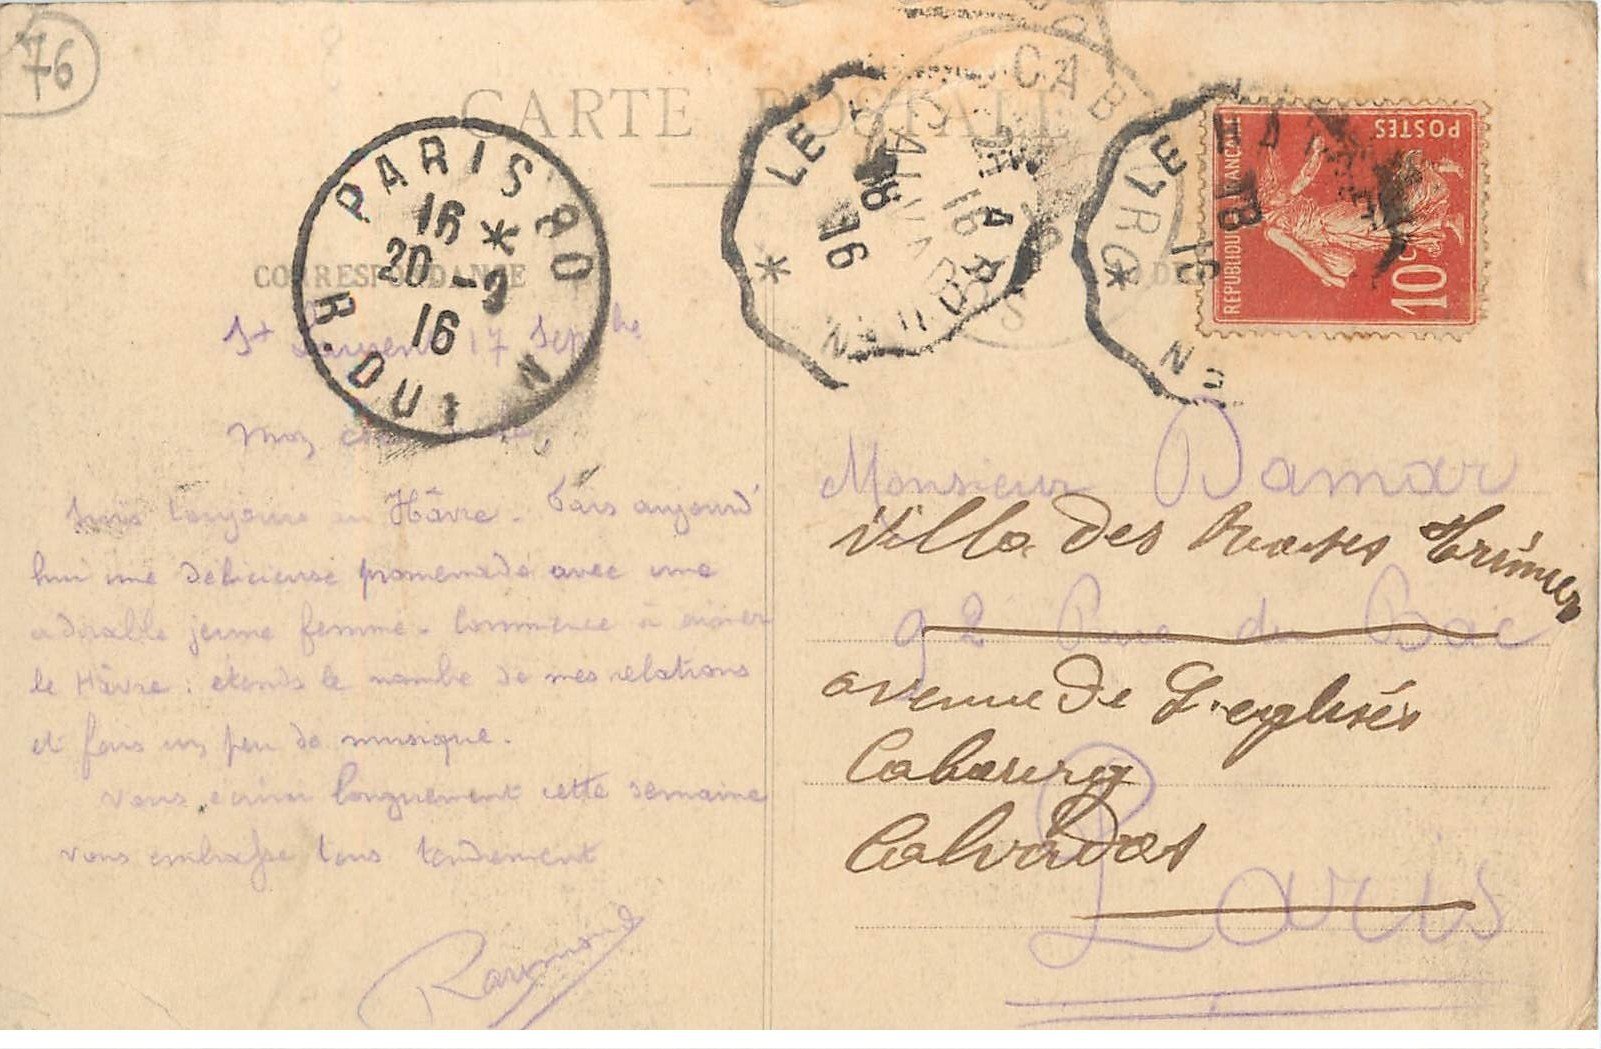 76
CARTE POSTALE
CORRESPONDANCE
PARIS
16
20 -9
16
R. DU
LE HAVRE A ROUEN
18
16
CABOURG
CALVADOS
LE
18
16
REPUBLIQUE FRANCAISE
POSTES
10c
St Laurent 17 Septbre
Mon
Suis toujours au Hâvre. Fais aujourd'
hui une délicieuse promenade avec une
adorable jeune femme. Commence à aimer
le Hâvre : étends le nombre de mes relations
et fais un peu de musique.
Vous écrirai longuement cette semaine
vous embrasse tous tendrement
Raymond
Monsieur Damar
Villa des
92 Rue du Bac
avenue de L'eglises
Cabourg
Calvados
Paris